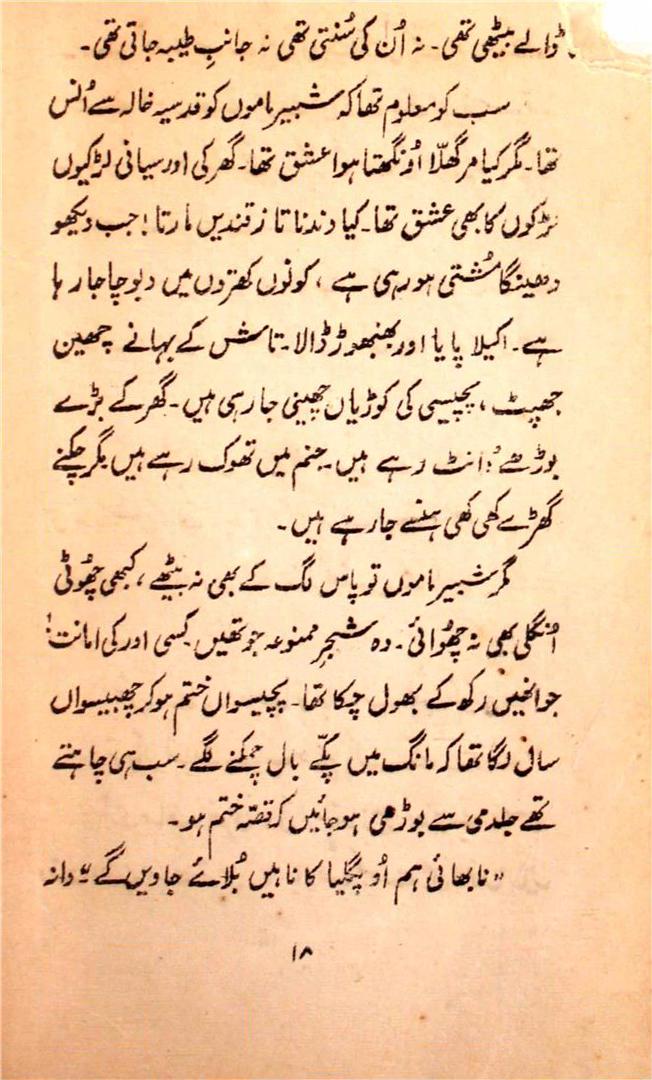 ڈالے بیٹھی تھی۔ نہ اُن کی سُنتی تھی نہ جانبِ طیبہ جاتی تھی۔
سب کو معلوم تھا کہ شبیر ماموں کو قدسیہ خالہ سے اُنس
تھا۔ مگر کیا مرگھلّا اُونگھتا ہوا عشق تھا۔ گھر کی اور سیانی لڑکیوں
لڑکوں کا بھی عشق تھا۔ کیا دندناتا زقندیں مارتا! جب دیکھو
دھینگا مُشتی ہو رہی ہے ، کونوں کھتروں میں دبوچا جا رہا
ہے۔ اکیلا پایا اور بھنبھوڑ ڈالا۔ تاش کے بہانے چھین
جھپٹ ، پچیسی کی کوڑیاں چھینی جا رہی ہیں۔ گھر کے بڑے
بوڑھے ڈانٹ رہے ہیں۔ جنم میں تھوک رہے ہیں مگر چکنے
گھڑے کھی کھی ہنسے جا رہے ہیں۔
مگر شبیر ماموں تو پاس لگ کے بھی نہ بیٹھے ، کبھی چھُوٹی
اُنگلی بھی نہ چھُوائی۔ وہ شجرِ ممنوعہ جو تھیں۔ کسی اور کی امانت!
جو انھیں رکھ کے بھول چکا تھا۔ پچیسواں ختم ہو کر چھبیسواں
سال لگا تھا کہ مانگ میں پکّے بال چمکنے لگے۔ سب ہی چاہتے
تھے جلدی سے بوڑھی ہو جائیں کہ قصّہ ختم ہو۔
"نا بھائی ہم اُو پگلیا کا ناہیں بُلائے جاویں گے" دانہ
۱۸